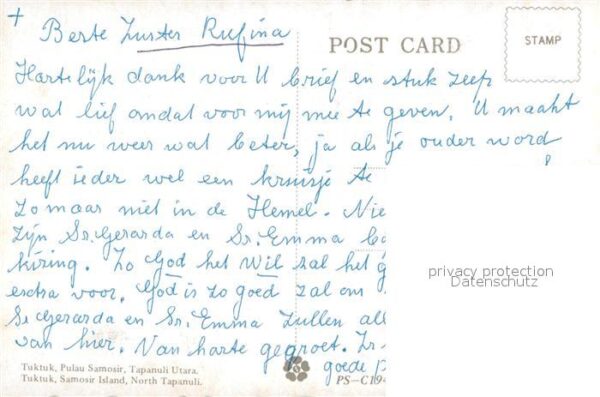 +
Beste Zuster Rufina
POST CARD
STAMP
Hartelijk dank voor U brief en stuk zeep
wat lief omdat voor mij mee te geven. U maakt
het nu weer wat beter, ja als je ouder word
heeft ieder wel een kruisje te
zo maar niet in de Hemel. Nie
zijn Sr. Gerarda en Sr. Emma
kiring. Zo God het wil zal het g
extra voor. God is zo goed zal om
Sr Gerarda en Sr. Emma zullen all
van hier. Van harte gegroet. Zr.
goede
privacy protection
Datenschutz
Tuktuk, Pulau Samosir, Tapanuli Utara.
Tuktuk, Samosir Island, North Tapanuli.
PS-C194